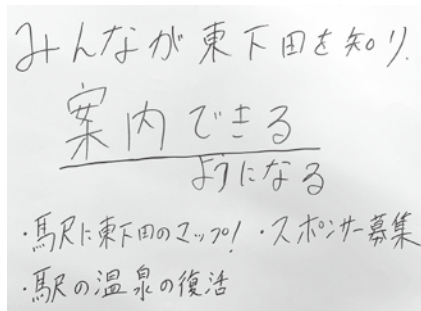 みんなが東下田を知り、
案内できる
ようになる
・駅に東下田のマップ! ・スポンサー募集
・駅の温泉の復活